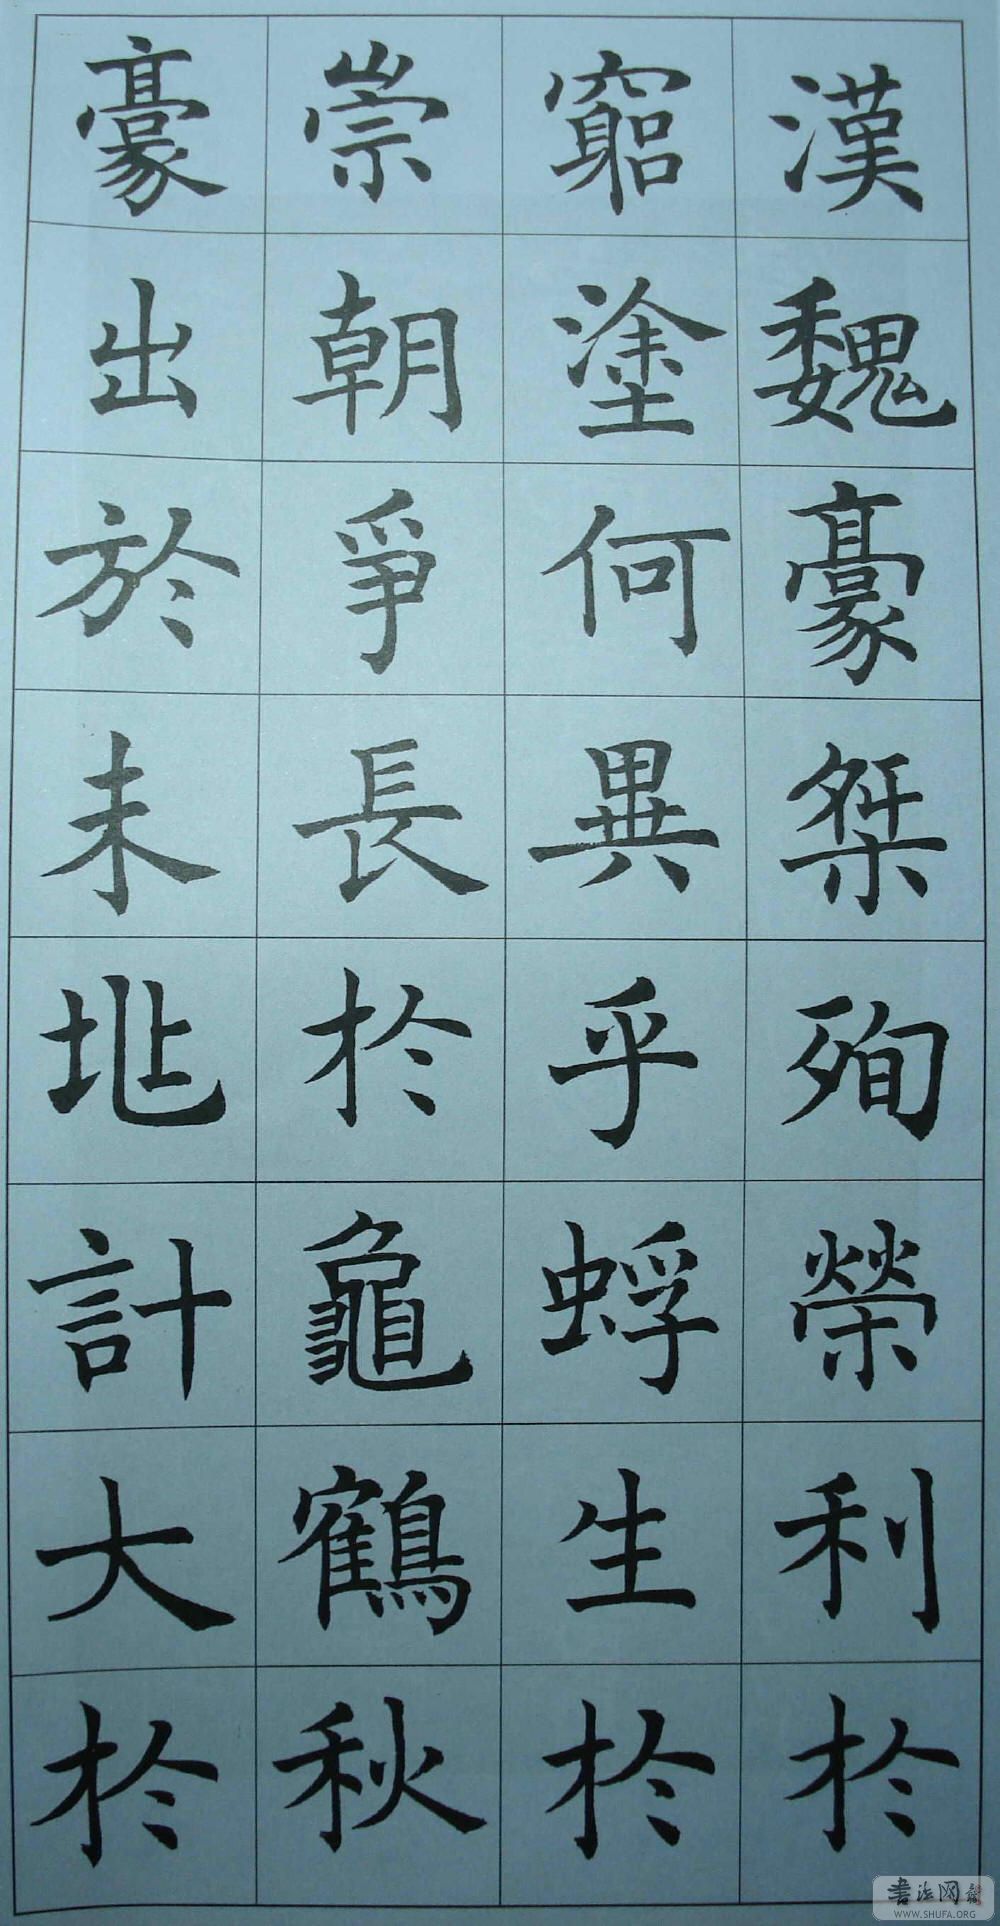 漢魏豪桀殉榮利於
竆塗何異乎蜉生於
崇朝爭長於龜鶴秋
豪出於未兆計大於
书法网
WWW.SHUFA.ORG